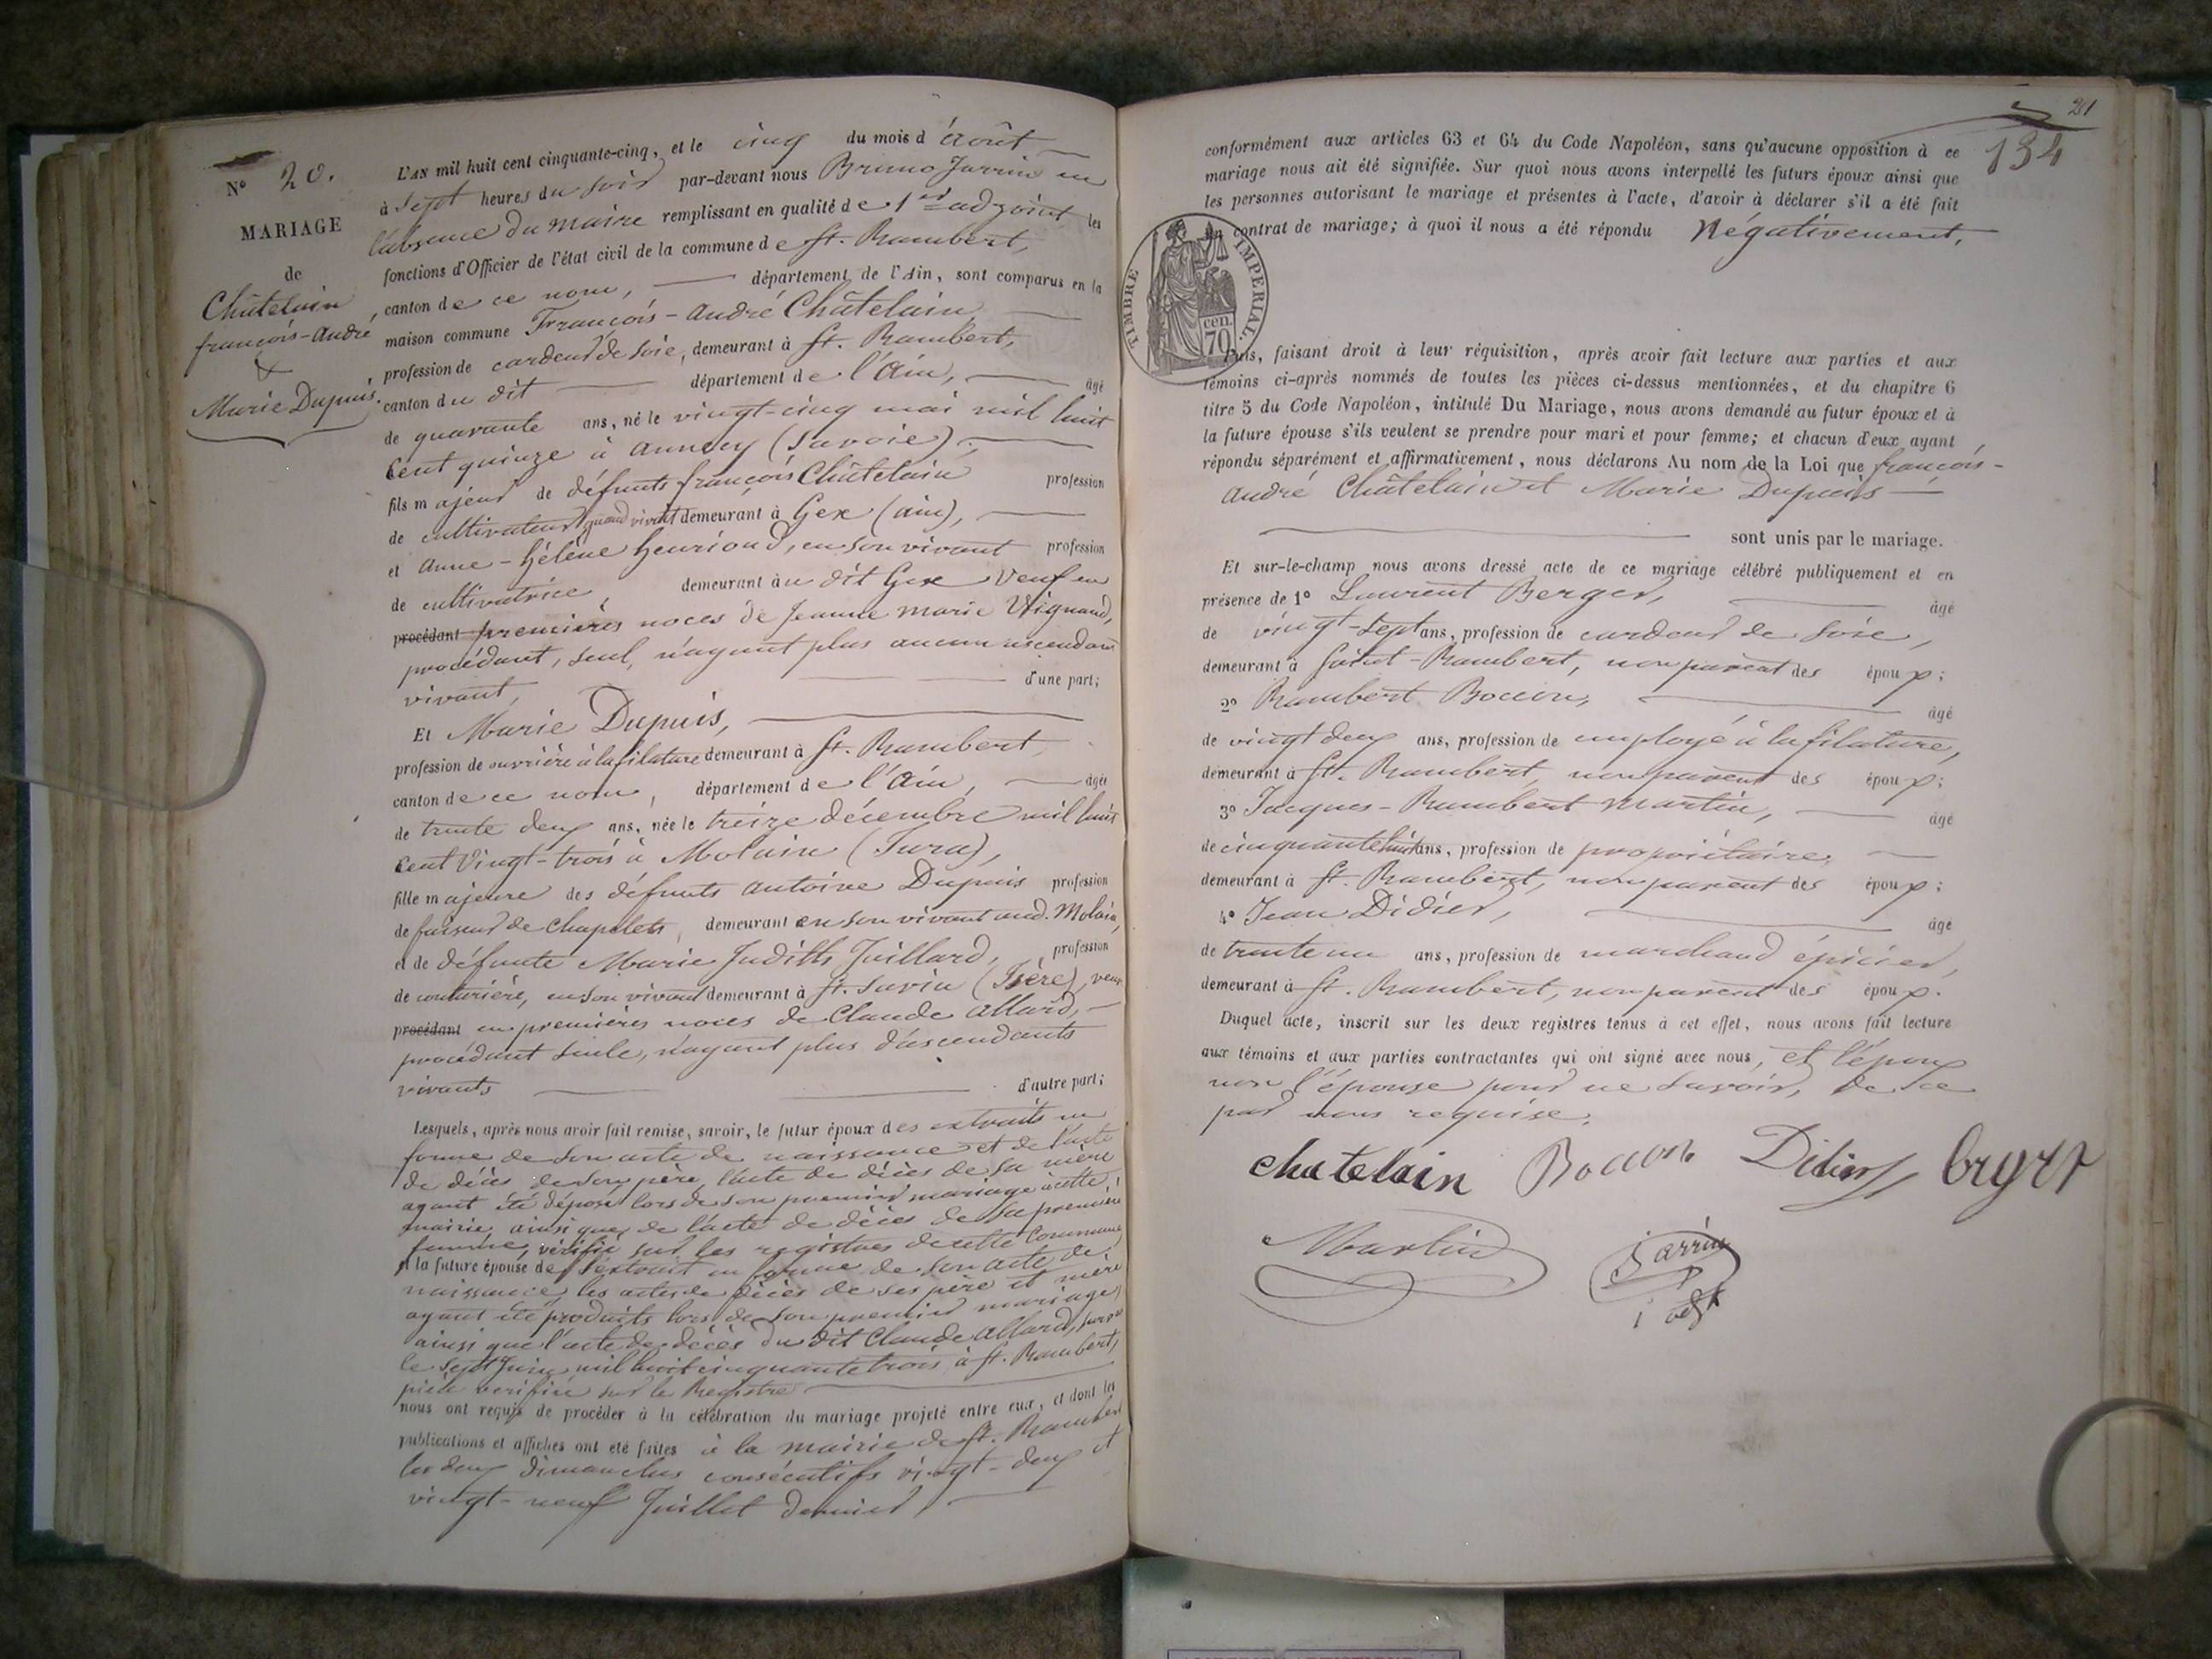 N° 20.
MARIAGE
de
Châtelain
françois-andré
&
Marie Dupuis.
L'AN mil huit cent cinquante-cinq, et le cinq du mois d'août
à sept heures du soir par-devant nous Bruno Jarrin en
l'absence du maire remplissant en qualité de 1er adjoint les
fonctions d'Officier de l'état civil de la commune de St. Rambert,
canton de ce nom, département de l'Ain, sont comparus en la
maison commune François-André Châtelain
profession de cardeur de soie, demeurant à St. Rambert,
canton du dit département de l'Ain, âgé
de quarante ans, né le vingt-cinq mai mil huit
cent quinze à annecy (Savoie),
fils majeur de défunts françois Châtelain profession
de cultivateur quand vivait demeurant à Gex (ain),
et anne-hélène henrioud, en son vivant profession
de cultivatrice, demeurant au dit Gex Veuf en
procédant premières noces de Jeanne marie
procédant, seul, n'ayant plus aucun ascendant
vivant, d'une part;
Et Marie Dupuis,
profession de ouvrière à la filature demeurant à St. Rambert,
canton de ce nom, département de l'Ain, âgée
de trente deux ans, née le treize décembre mil huit
cent vingt-trois à Molain (Jura),
fille majeure des défunts antoine Dupuis profession
de faiseur de chapelets, demeurant en son vivant aud. Molain,
et de défunte Marie Judith Juillard, profession
de couturière, en son vivant demeurant à St. Savin (Isère), veuve
procédant en premières noces de Claude allard,
procédant seule, n'ayant plus d'ascendants
vivants d'autre part;
Lesquels, après nous avoir fait remise, savoir, le futur époux des extraits en
forme de son acte de naissance et de l'acte
de décès de son père, l'acte de décès de sa mère
ayant été déposé lors de son premier mariage à cette
mairie, ainsi que de l'acte de décès de sa première
femme, vérifié sur les registres de cette commune,
et la future épouse de l'extrait en forme de son acte de
naissance, les actes de décès de ses père et mère
ayant été produits lors de son premier mariage,
ainsi que l'acte de décès du dit Claude allard,
le sept Juin mil huit cinquante trois à St. Rambert,
pièce vérifiée sur le Registre
nous ont requis de procéder à la célébration du mariage projeté entre eux, et dont les
publications et affiches ont été faites à la mairie de St. Rambert
les deux dimanches consécutifs vingt-deux et
vingt-neuf Juillet dernier,
21
134
conformément aux articles 63 et 64 du Code Napoléon, sans qu'aucune opposition à ce
mariage nous ait été signifiée. Sur quoi nous avons interpellé les futurs époux ainsi que
les personnes autorisant le mariage et présentes à l'acte, d'avoir à déclarer s'il a été fait
un contrat de mariage; à quoi il nous a été répondu Négativement,
TIMBRE IMPERIAL.
70 cen.
Puis, faisant droit à leur réquisition, après avoir fait lecture aux parties et aux
témoins ci-après nommés de toutes les pièces ci-dessus mentionnées, et du chapitre 6
titre 5 du Code Napoléon, intitulé Du Mariage, nous avons demandé au futur époux et à
la future épouse s'ils veulent se prendre pour mari et pour femme; et chacun d'eux ayant
répondu séparément et affirmativement, nous déclarons Au nom de la Loi que françois-
André Châtelain et Marie Dupuis
sont unis par le mariage.
Et sur-le-champ nous avons dressé acte de ce mariage célébré publiquement et en
présence de 1° Laurent Berger, âgé
de vingt-sept ans, profession de cardeur de soie,
demeurant à Saint-Rambert, non parent des époux;
2° Rambert Boccon, âgé
de vingt deux ans, profession de employé à la filature,
demeurant à St. Rambert, non parent des époux;
3° Jacques-Rambert Martin, âgé
de cinquante huit ans, profession de propriétaire,
demeurant à St. Rambert, non parent des époux;
4° Jean Didier, âgé
de trente un ans, profession de marchand épicier,
demeurant à St. Rambert, non parent des époux.
Duquel acte, inscrit sur les deux registres tenus à cet effet, nous avons fait lecture
aux témoins et aux parties contractantes qui ont signé avec nous, et l'époux
non l'épouse pour ne savoir, de ce
par nous requise.
chatelain Boccon Didier
Martin Jarrin
1 adjt